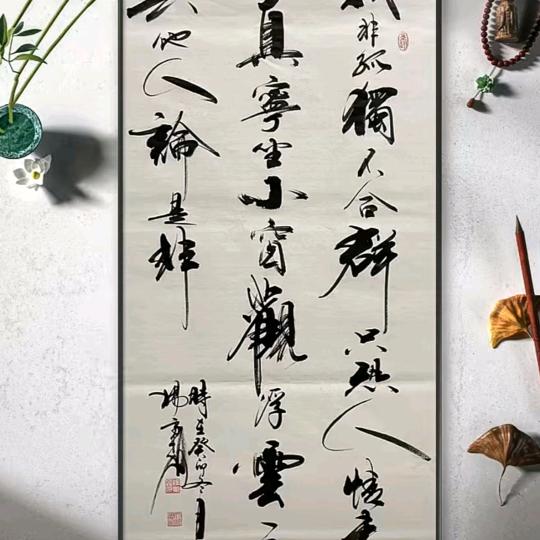 非孤獨不合群只恐人情
真寧坐小窗觀浮雲
他人論是非
時在癸卯冬月
楊